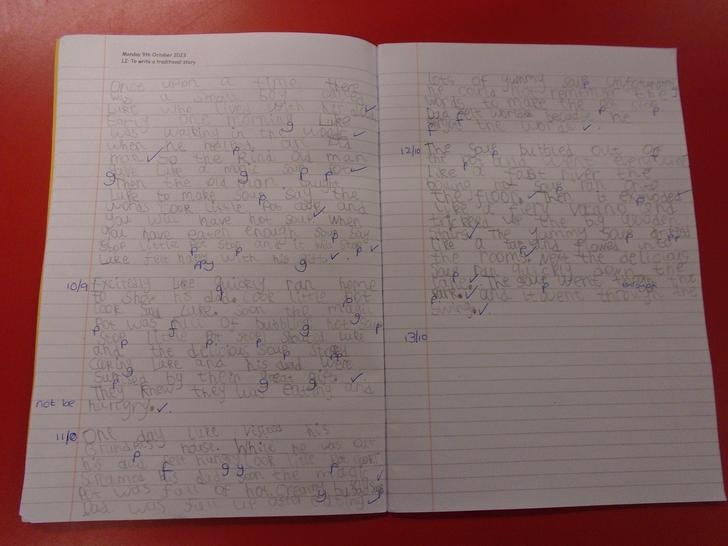 Monday 9th October 2023
LI: To write a traditional story
Once upon a time there
was a small boy called
Luke who lived with his dad
Early one morning Luke
was walking in the woods
when he helped an old
man. So the kind old man
gave Luke a magic soup pot
Then the old man taught
Luke to make soup say the
words Cook little Pot cook and
you will have hot soup when
you have eaten enough soup say
Stop little pot stop and it will stop
Luke felt happy with his gift
10/9
Excitedly Luke quickly ran home
to show his dad. Cook little pot
cook said Luke. Soon the magic
Pot was full of bubbling hot soup
Stop little Pot stop shouted Luke
and the delicious soup stopped
Luke and his dad were
by their great gift
They knew they was eating and
not be
hungry.
11/0
One day Luke visited his
house. While he was out
his dad felt hungry cook little pot cook
Screamed his dad soon the magic
Pot was full of hot creamy
Dad was full up after eating
lots of yummy soup
he could not remember the
words to make the stop
Dad felt worried because he
forgot the words
12/10
The Soup bubbled out of
the pot and went everywhere
Like a fast river the
boiling hot soup ran onto
the floor. Then it exploded
like a volcano and
trickled up the wooden
stairs. The yummy soup dripped
like a tap and flowed into
the room. Next the delicious
soup ran quickly down the
The soup went
and it went through the
13/10